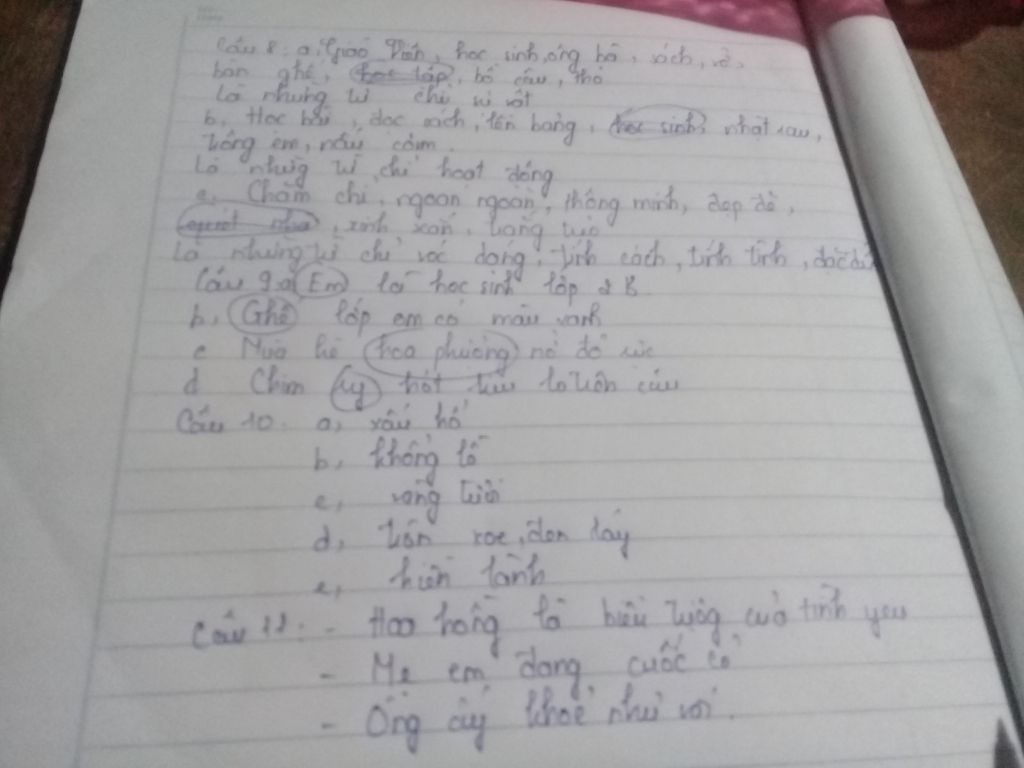 Câu 8: a, Giáo viên, học sinh, ông bà, sách, vở,
bàn ghế, học tập, bồ câu, thỏ
Là những từ chỉ sự vật
b, Học bài, đọc sách, lên bảng, học sinh, nhặt rau,
trông em, nấu cơm.
Là những từ chỉ hoạt động
c, Chăm chỉ, ngoan ngoãn, thông minh, đẹp đẽ,
quét nhà, xinh xắn, trắng trẻo
Là những từ chỉ vóc dáng, tính cách, tính tình, đặc điểm
Câu 9: a, Em là học sinh lớp 2B
b, Ghế lớp em có màu xanh
c Mùa hè hoa phượng nở đỏ rực
d Chim hót líu lo trên cây
Câu 10. a, xấu hổ
b, khổng lồ
c, rộng
d, tròn xoe, đen láy
e, hiền lành
Câu 11: - Hoa hồng là biểu tượng của tình yêu
- Mẹ em đang cuốc cỏ
- Ông ấy khoẻ như voi.